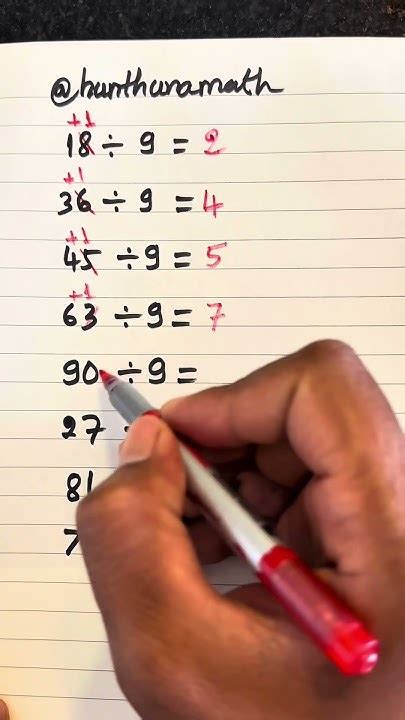 @bunthuramath
+1
18 ÷ 9 = 2
+1
36 ÷ 9 = 4
+1
45 ÷ 9 = 5
+1
63 ÷ 9 = 7
90 ÷ 9 =
27 ÷
81
7